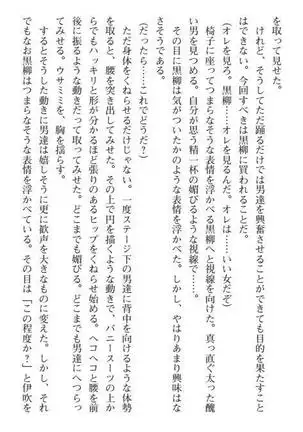 を取って見せた。
けれど、そうしてただ踊るだけでは男達を興奮させることができても目的を果たすこと
はできない。今回すべきは黒柳に買われることだ。
（オレを見ろ。黒柳……オレを見るんだ。オレは……いい女だぞ）
椅子に座ってつまらなそうな表情を浮かべる黒柳へと視線を向けた。真っ直ぐ太った醜
い男を見つめる。自分が思う精一杯の媚びるような視線で……。
その目に黒柳は気がついたかのような表情を浮かべた。しかし……、やはりあまり興味はな
さそうである。
（だったら……これでどうだ？）
ただ身体をくねらせるだけじゃない。一度ステージ下の男達に背中を向けるような体勢
を取ると、腰を突き出してみせた。その上で円を描くような動きで、バニースーツの上か
らでもハッキリと形が分かるほど張りのあるヒップをくねらせ始める。ヘコヘコと腰を前
後に振るような動きだって取ってみせた。どこまでも媚びる。どこまでも男達にへつらっ
てみせる。ウサミミを、胸を揺らす。
するとそうした動きに男達は嬉しそうに更に歓声を大きなものに変えた。しかし、それ
でもなお黒柳はつまらなそうな表情を浮かべている。その目は「この程度か？」と伊吹を